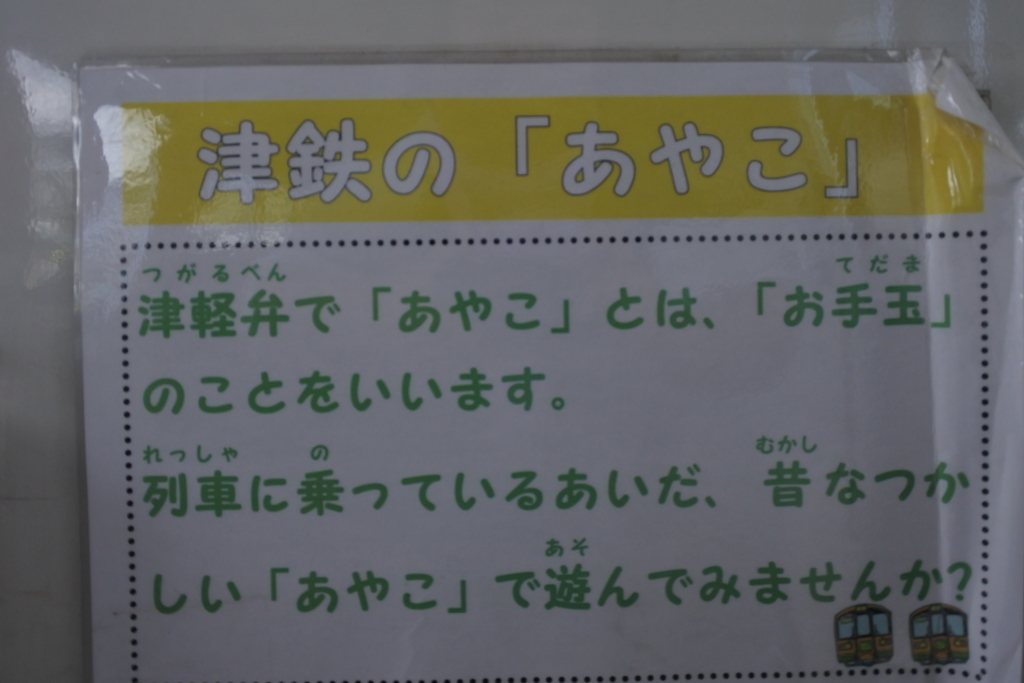 津鉄の「あやこ」
つがるべん てだま
津軽弁で「あやこ」とは、「お手玉」
のことをいいます。
れっしゃ の むかし
列車に乗っているあいだ、昔なつか
あそ
しい「あやこ」で遊んでみませんか?